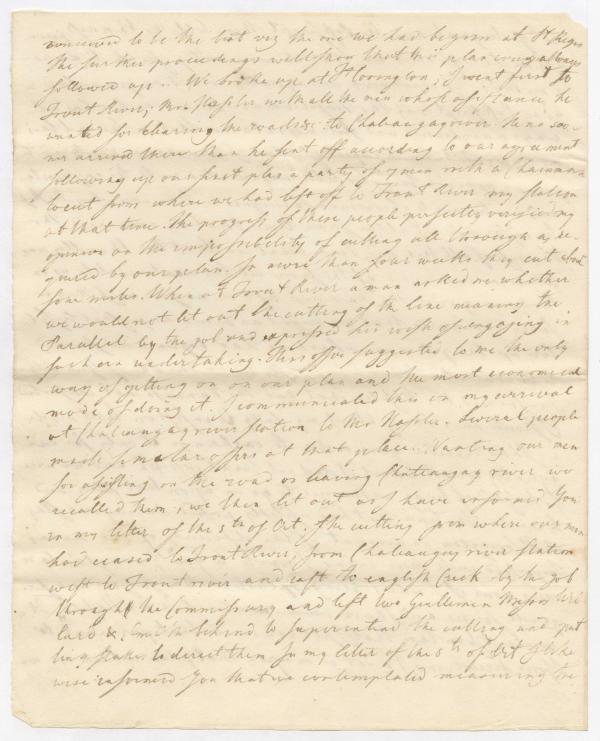 conceived to be the best viz the one we had begun at St Regis
The further proceedings will show that this plan was always
followed up.. We broke up at St Covington; I went first to
Trout River; Mr Hassler with all the men whose assistance he
wanted for clearing the roads &c to Chateaugayriver. He no soo-
ner arrived there than he sent off according to our agreement
following up our first plan a party of 7 men with a Chainman
to cut from where we had left off to Trout River my station
at that time. The progress of these people perfectly verified my
opinion on the impossibility of cutting all through as re-
quired by our plan. In more than four weeks they cut about
four miles. When at Trout River a man asked me whether
we would not let out the cutting of the line meaning the
Parallel by the job and expressed his wish of engaging in
such an undertaking. This offer suggested to me the only
way of getting on on our plan and the most economical
mode of doing it. I communicated this on my arrival
at Chateaugayriver station to Mr Hassler. Several people
made similar offers at that place. Wanting our men
for assisting on the road on leaving Chateaugay river we
recalled them; we then let out as I have informed You
in my letter of the 5th of Oct. the cutting from where our men
had ceased to Trout River, from Chateaugay river Station
west to Trout river and east to english Creek by the job
through the Commissary and left two Gentlemen Messrs
& Smith behind to superintend the cutting and put
ting stakes to direct them. In my letter of the 5th of Oct I like
wise informed You that we contemplated measuring the